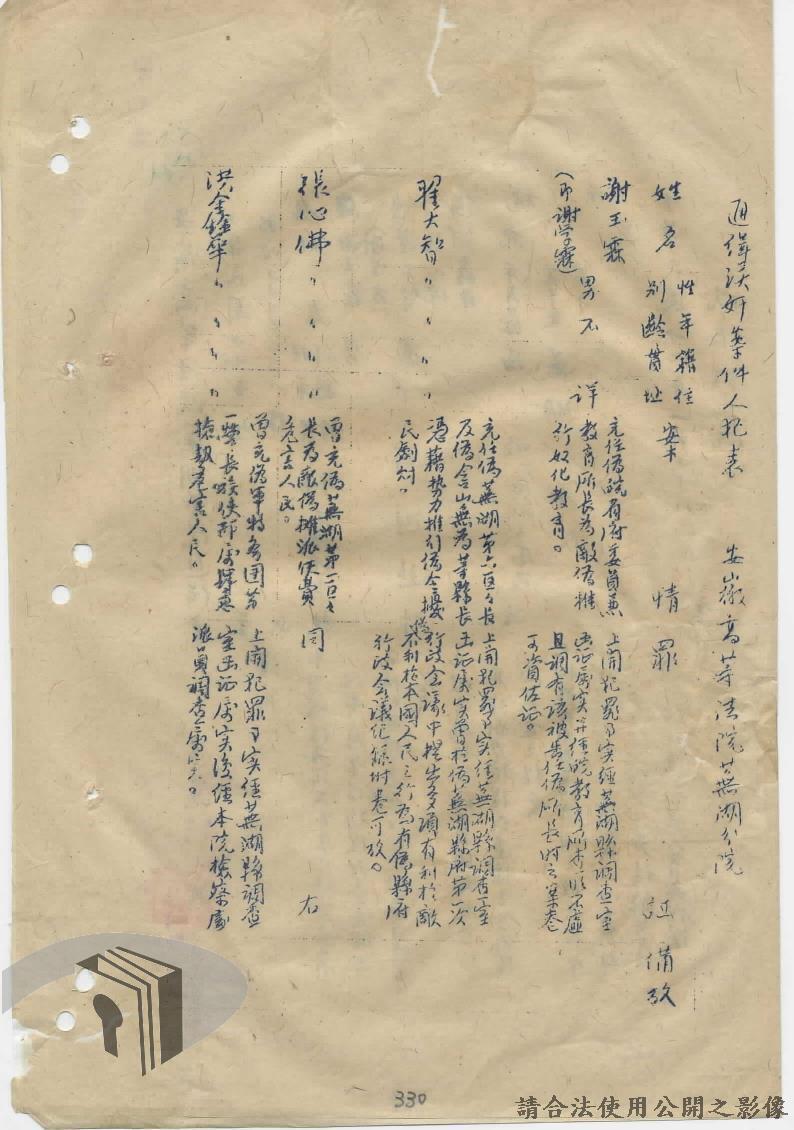 通緝漢奸案件人犯表 安徽高等法院蕪湖分院
姓名 性別 年齡 籍貫 住址 案情 罪証 備攷
謝玉霖
(即謝學霖) 男 不
詳
充任偽皖省府委員兼
教育所長為敵偽推
行奴化教育。
上開犯罪事實經蕪湖縣調查室
函証屬實並經皖教育所
且調有該被告任偽所長時之案卷
可資佐証。
翟大智 〃 〃 〃
充任偽蕪湖第六區區長
及偽含山無為等縣長
憑藉勢力推行偽令擾
民劍財。
上開犯罪事實經蕪湖縣調查室
函証屬實曾於偽蕪湖縣府第一次
行政會議中提出多項有利於敵
偽不利於本國人民之行為有偽縣府
行政會議紀錄附卷可攷。
張心佛 〃 〃 〃 〃
曾充偽蕪湖第一區區
長為敵偽攤派伕費
危害人民。
同 右
洪金華 〃 〃 〃 〃
曾充偽軍特務團第
一營長唆使部屬肆意
搶劫危害人民。
上開犯罪事實經蕪湖縣調查
室函証屬實後經本院檢察處
派員調查屬實。
330
請合法使用公開之影像